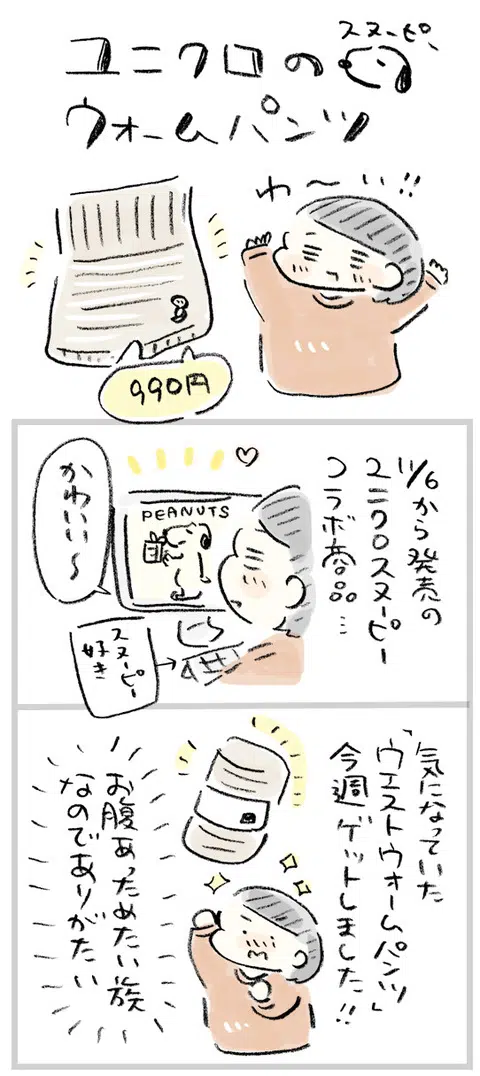 ユニクロの
スヌーピー
ウォームパンツ
わ〜い!!
990円
11/6から発売の
ユニクロスヌーピー
コラボ商品…
PEANUTS
かわいい〜
スヌーピー
好き
気になっていた
「ウエストウォームパンツ」
今週ゲットしました!!
お腹あっためたい族
なのでありがたい